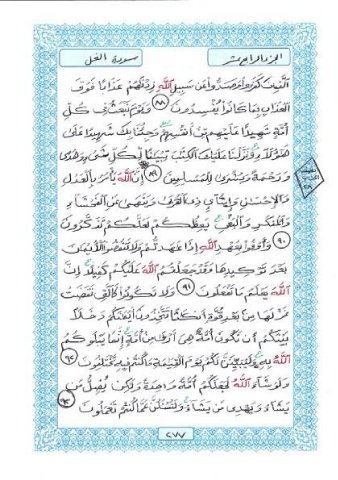 الجزء الرابع عشر
سورة النحل
الَّذِينَ كَفَرُوا وَصَدُّوا عَن سَبِيلِ اللَّهِ زِدْنَٰهُمْ عَذَابًا فَوْقَ
الْعَذَابِ بِمَا كَانُوا يُفْسِدُونَ ٨٨ وَيَوْمَ نَبْعَثُ فِى كُلِّ
أُمَّةٍ شَهِيدًا عَلَيْهِم مِّنْ أَنفُسِهِمْ وَجِئْنَا بِكَ شَهِيدًا عَلَىٰ
هَٰؤُلَاءِ وَنَزَّلْنَا عَلَيْكَ الْكِتَٰبَ تِبْيَٰنًا لِّكُلِّ شَىْءٍ وَهُدًى
وَرَحْمَةً وَبُشْرَىٰ لِلْمُسْلِمِينَ ٨٩ إِنَّ اللَّهَ يَأْمُرُ بِالْعَدْلِ
وَالْإِحْسَٰنِ وَإِيتَائِ ذِى الْقُرْبَىٰ وَيَنْهَىٰ عَنِ الْفَحْشَاءِ
وَالْمُنكَرِ وَالْبَغْىِ يَعِظُكُمْ لَعَلَّكُمْ تَذَكَّرُونَ
٩٠ وَأَوْفُوا بِعَهْدِ اللَّهِ إِذَا عَٰهَدتُّمْ وَلَا تَنقُضُوا الْأَيْمَٰنَ
بَعْدَ تَوْكِيدِهَا وَقَدْ جَعَلْتُمُ اللَّهَ عَلَيْكُمْ كَفِيلًا إِنَّ
اللَّهَ يَعْلَمُ مَا تَفْعَلُونَ ٩١ وَلَا تَكُونُوا كَالَّتِى نَقَضَتْ
غَزْلَهَا مِن بَعْدِ قُوَّةٍ أَنكَٰثًا تَتَّخِذُونَ أَيْمَٰنَكُمْ دَخَلًا
بَيْنَكُمْ أَن تَكُونَ أُمَّةٌ هِىَ أَرْبَىٰ مِنْ أُمَّةٍ إِنَّمَا يَبْلُوكُمُ
اللَّهُ بِهِ وَلَيُبَيِّنَنَّ لَكُمْ يَوْمَ الْقِيَٰمَةِ مَا كُنتُمْ فِيهِ تَخْتَلِفُونَ ٩٢
وَلَوْ شَاءَ اللَّهُ لَجَعَلَكُمْ أُمَّةً وَٰحِدَةً وَلَٰكِن يُضِلُّ مَن
يَشَاءُ وَيَهْدِى مَن يَشَاءُ وَلَتُسْئَلُنَّ عَمَّا كُنتُمْ تَعْمَلُونَ ٩٣
٢٧٧